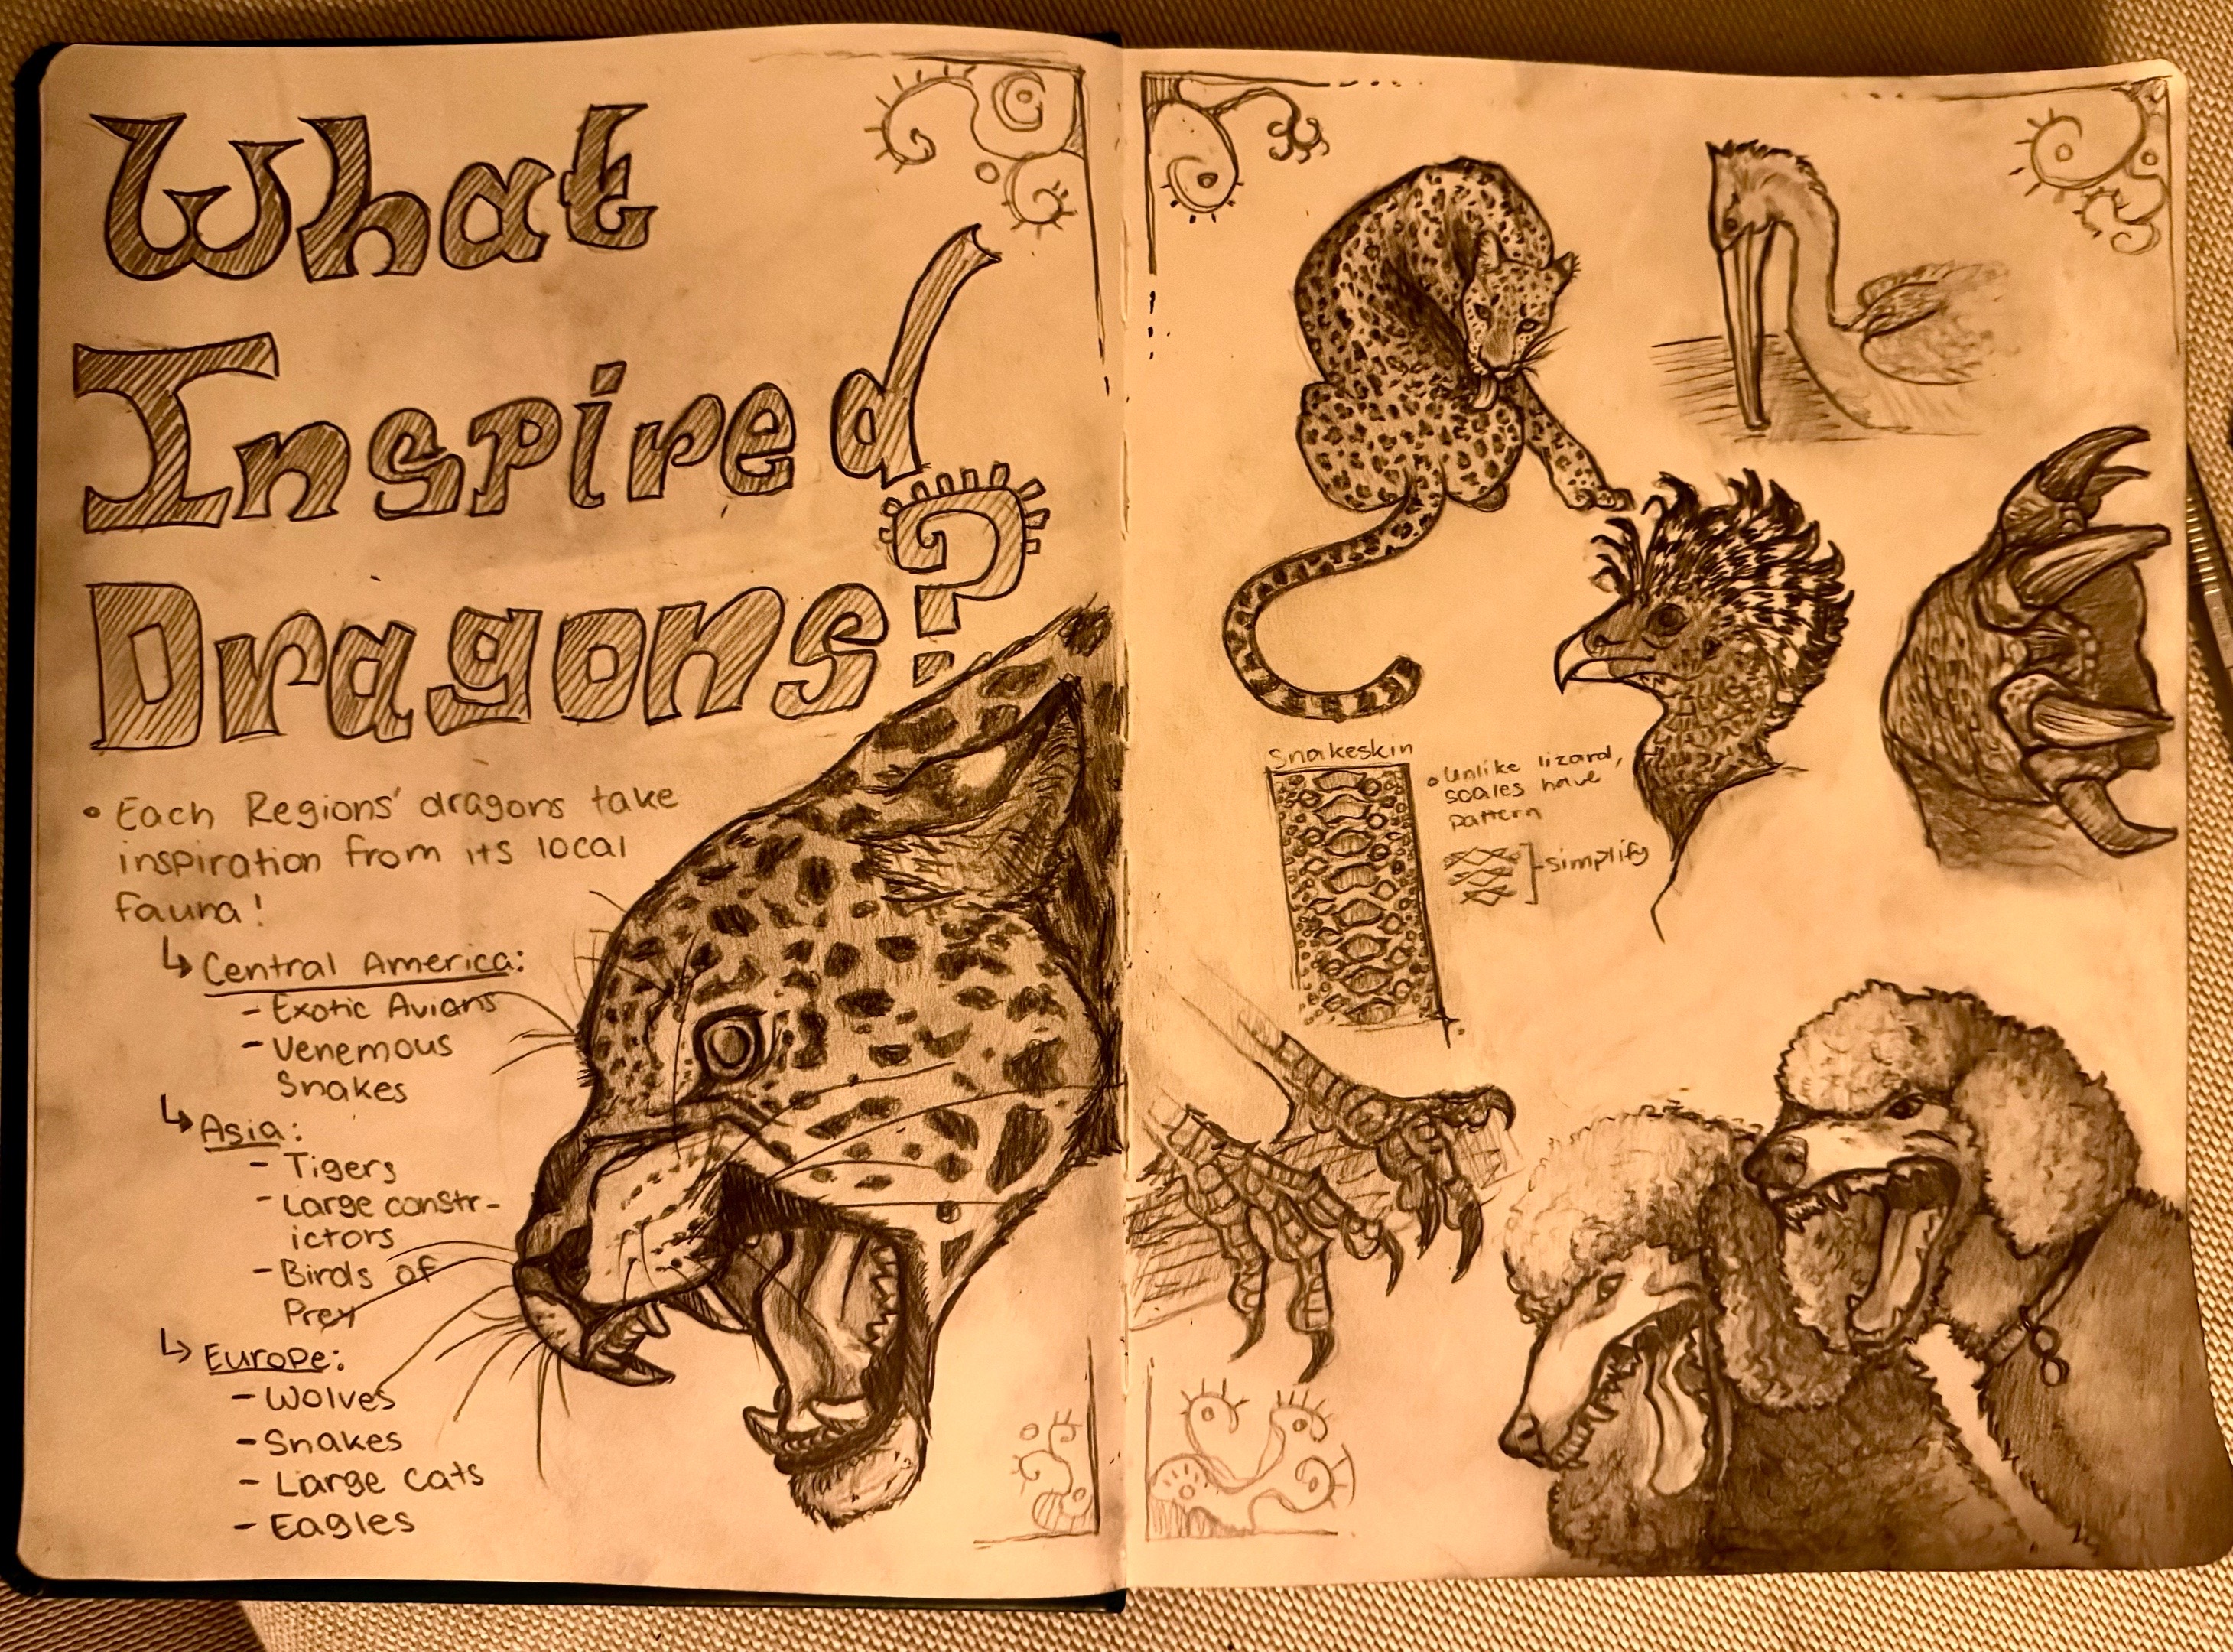 What
Inspired
Dragons?
• Each Regions' dragons take
inspiration from its local
fauna!
↳ Central America:
- Exotic Avians
- Venemous
Snakes
↳ Asia:
- Tigers
- Large constr-
ictors
- Birds of
Prey
↳ Europe:
- Wolves
- Snakes
- Large cats
- Eagles
Snakeskin
• Unlike lizard,
scales have
pattern
simplify